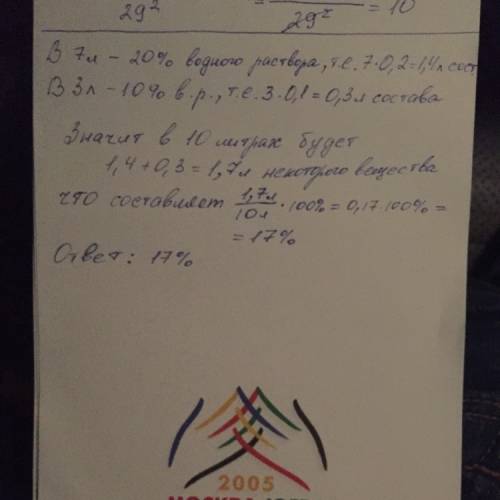 29² = 29² = 10
В 7л – 20% водного раствора, т.е. 7·0,2=1,4л сост
В 3л – 10% в.р., т.е. 3·0,1=0,3л состава
Значит в 10 литрах будет
1,4+0,3=1,7л некоторого вещества
что составляет 1,7л/10л · 100% = 0,17·100% =
= 17%
Ответ: 17%
2005